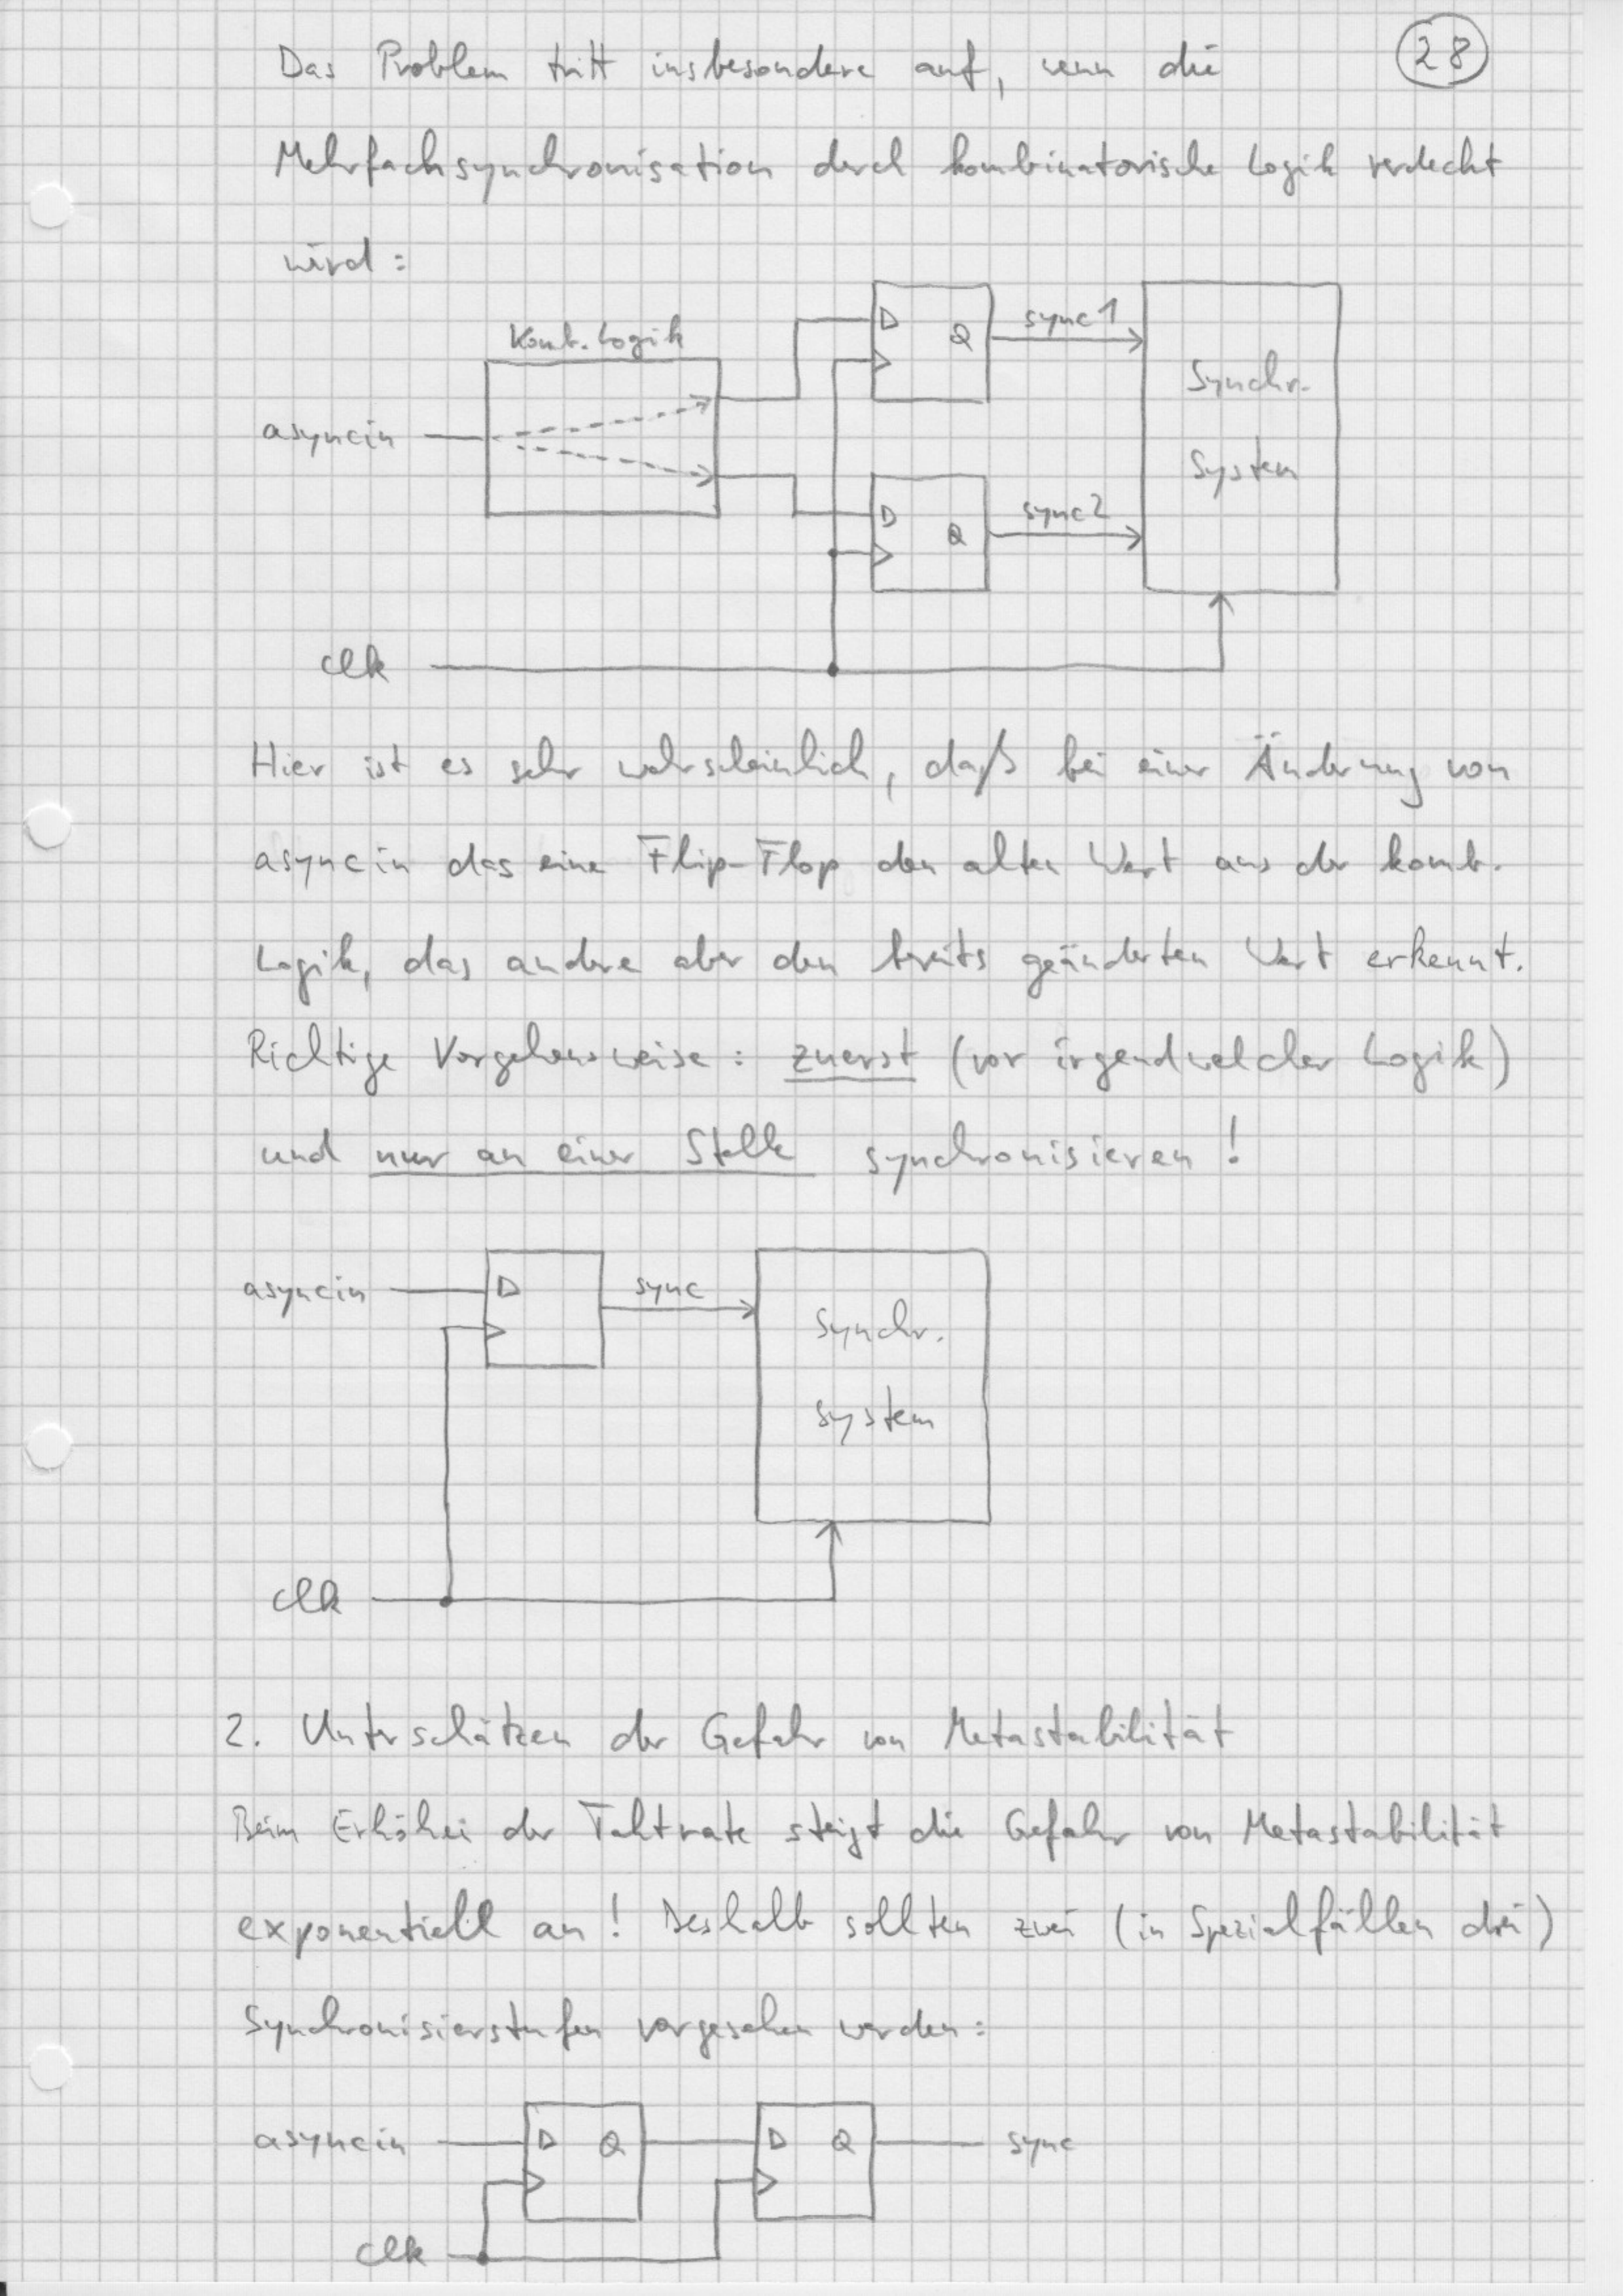 28
Das Problem tritt insbesondere auf, wenn die
Mehrfachsynchronisation durch kombinatorische Logik verdeckt
wird:
Komb. Logik
D
Q
sync1
Synchr.
System
asyncin
D
Q
sync2
clk
Hier ist es sehr wahrscheinlich, daß bei einer Änderung von
asyncin das eine Flip-Flop den alten Wert aus der komb.
Logik, das andere aber den bereits geänderten Wert erkennt.
Richtige Vorgehensweise: zuerst (vor irgendwelcher Logik)
und nur an einer Stelle synchronisieren!
asyncin
D
sync
Synchr.
System
clk
2. Unterschätzen der Gefahr von Metastabilität
Beim Erhöhen der Taktrate steigt die Gefahr von Metastabilität
exponentiell an! Deshalb sollten zwei (in Spezialfällen drei)
Synchronisierstufen vorgesehen werden:
asyncin
D
Q
D
Q
sync
clk